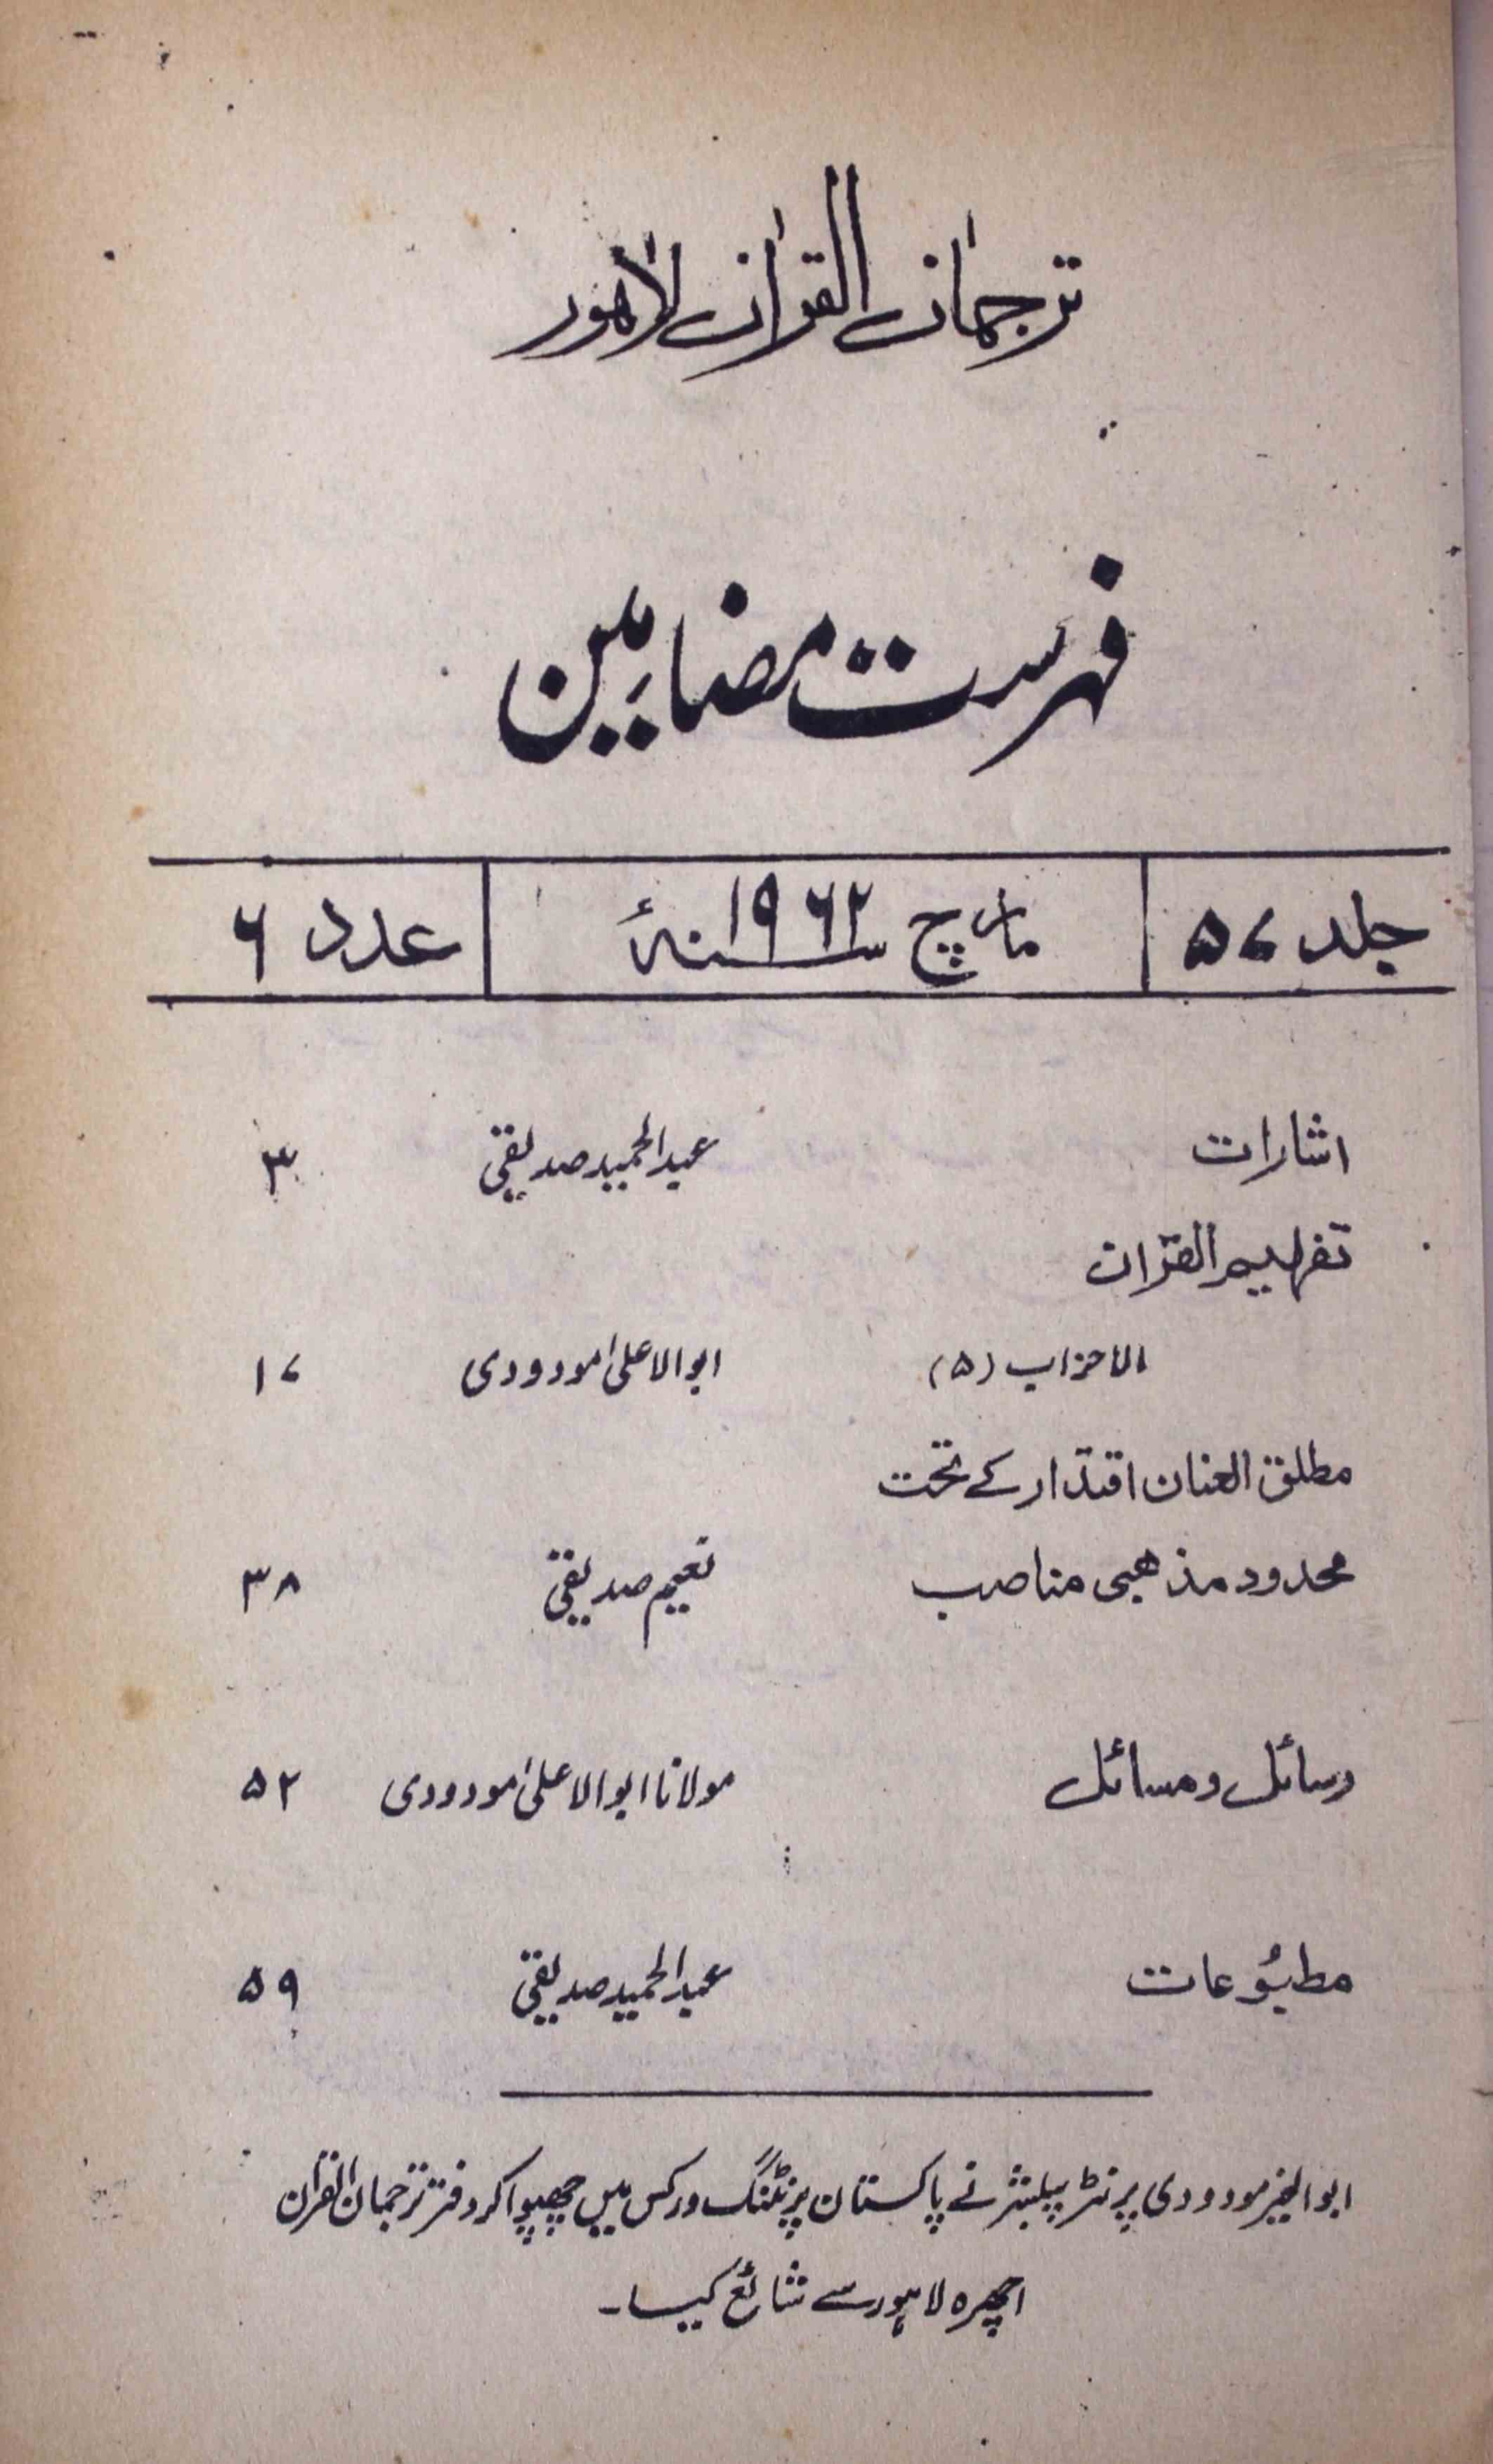 ترجمان القرآن لاہور
فہرست مضامین
جلد ۵۷ مارچ ۱۹۶۲ سنہٴ عدد ۶
اشارات عبدالحمید صدیقی ۳
تفہیم القرآن
الاحزاب (۵) ابوالاعلیٰ مودودی ۱۷
مطلق العنان اقتدار کے تحت
محدود مذھبی مناصب نعیم صدیقی ۳۸
رسائل و مسائل مولانا ابوالاعلیٰ مودودی ۵۲
مطبُوعات عبدالحمید صدیقی ۵۹
ابوالخیر مودودی پرنٹر پبلشر نے پاکستان پرنٹنگ ورکس میں چھپوا کر دفتر ترجمان القرآن
اچھرہ لاہور سے شائع کیا۔